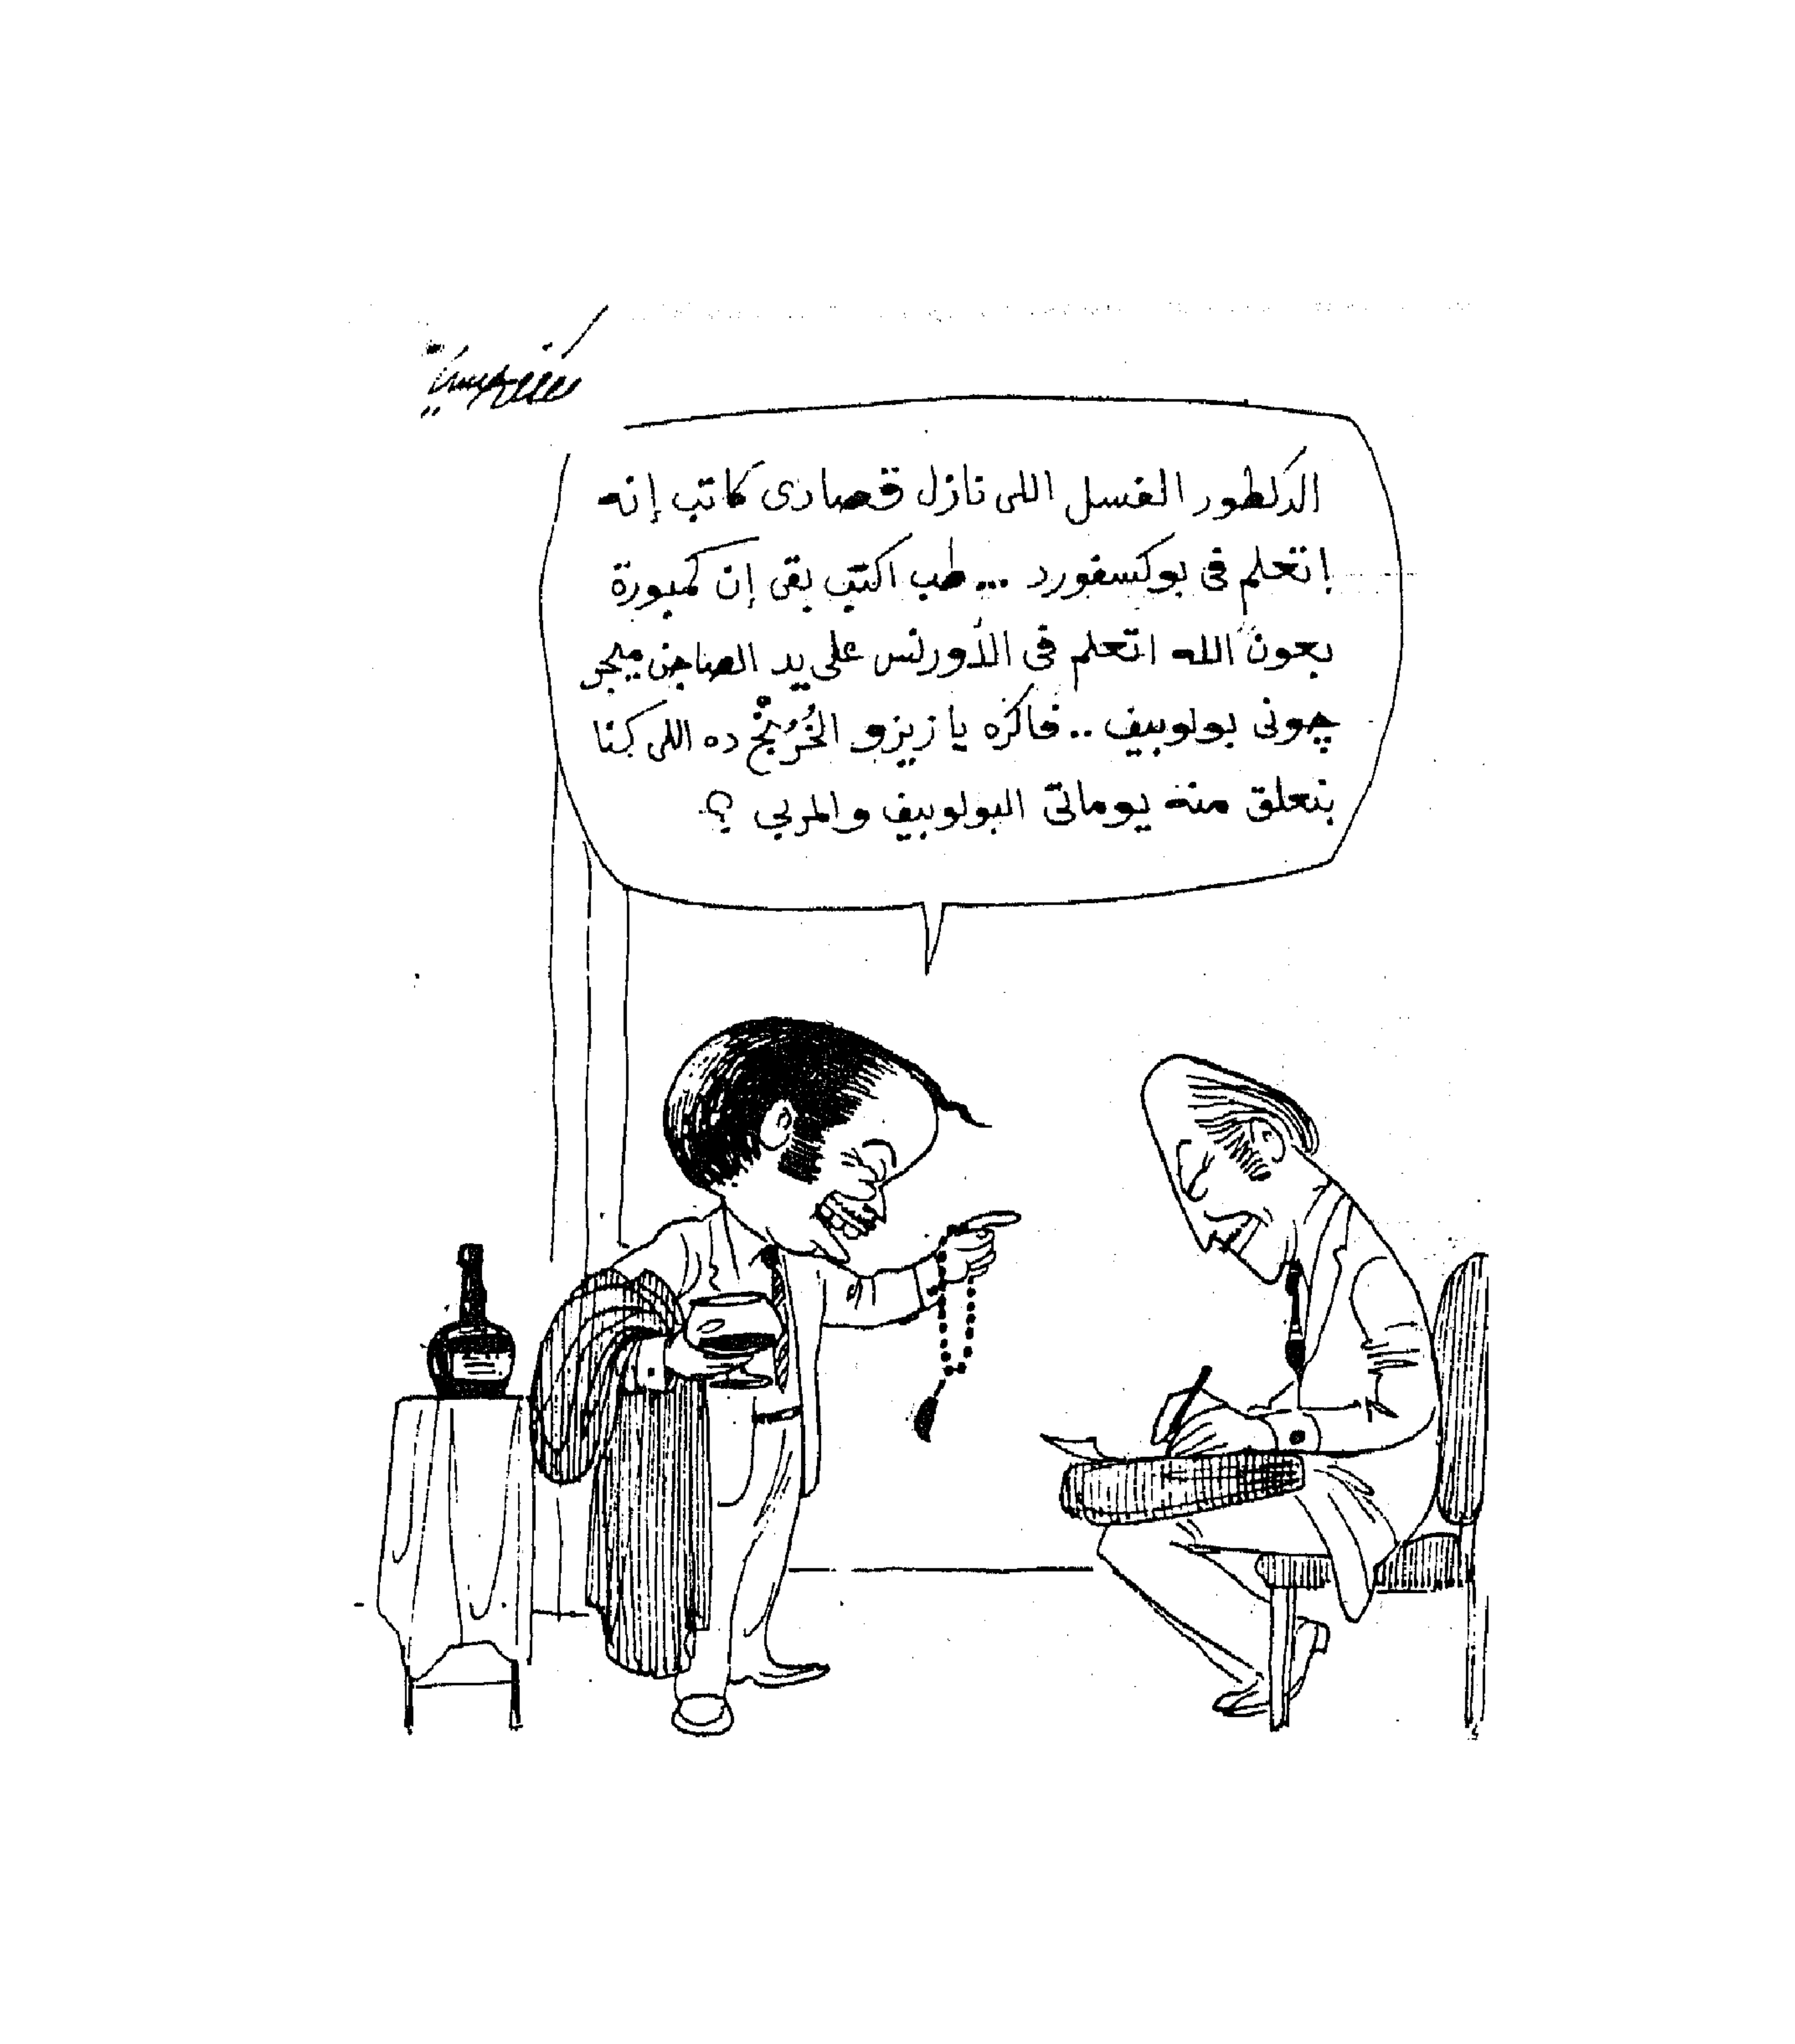 الدلطور الفسل اللى نازل قصادى كاتب إنه
اتعلم فى بوكسفورد ... طب اكتب بقى إن كمبورة
بعون الله اتعلم فى الأورنس على يد الصاجن ميجر
چونى بولوبيف .. فاكره يا زيزو الخُرُنْج ده اللى كنا
بنعلق منه يوماتى البولوبيف والمربى ؟